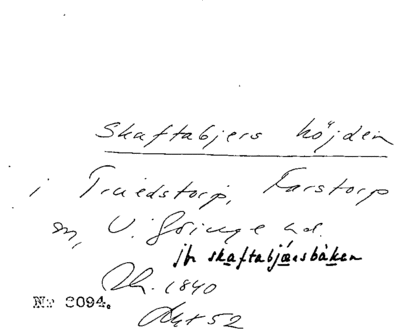 Skaftabjers höjden
i Truedstorp, Farstorp
sn, V. Göinge hd.
jfr skaftabjærsbaken
1840
No 3094.
Akt 52